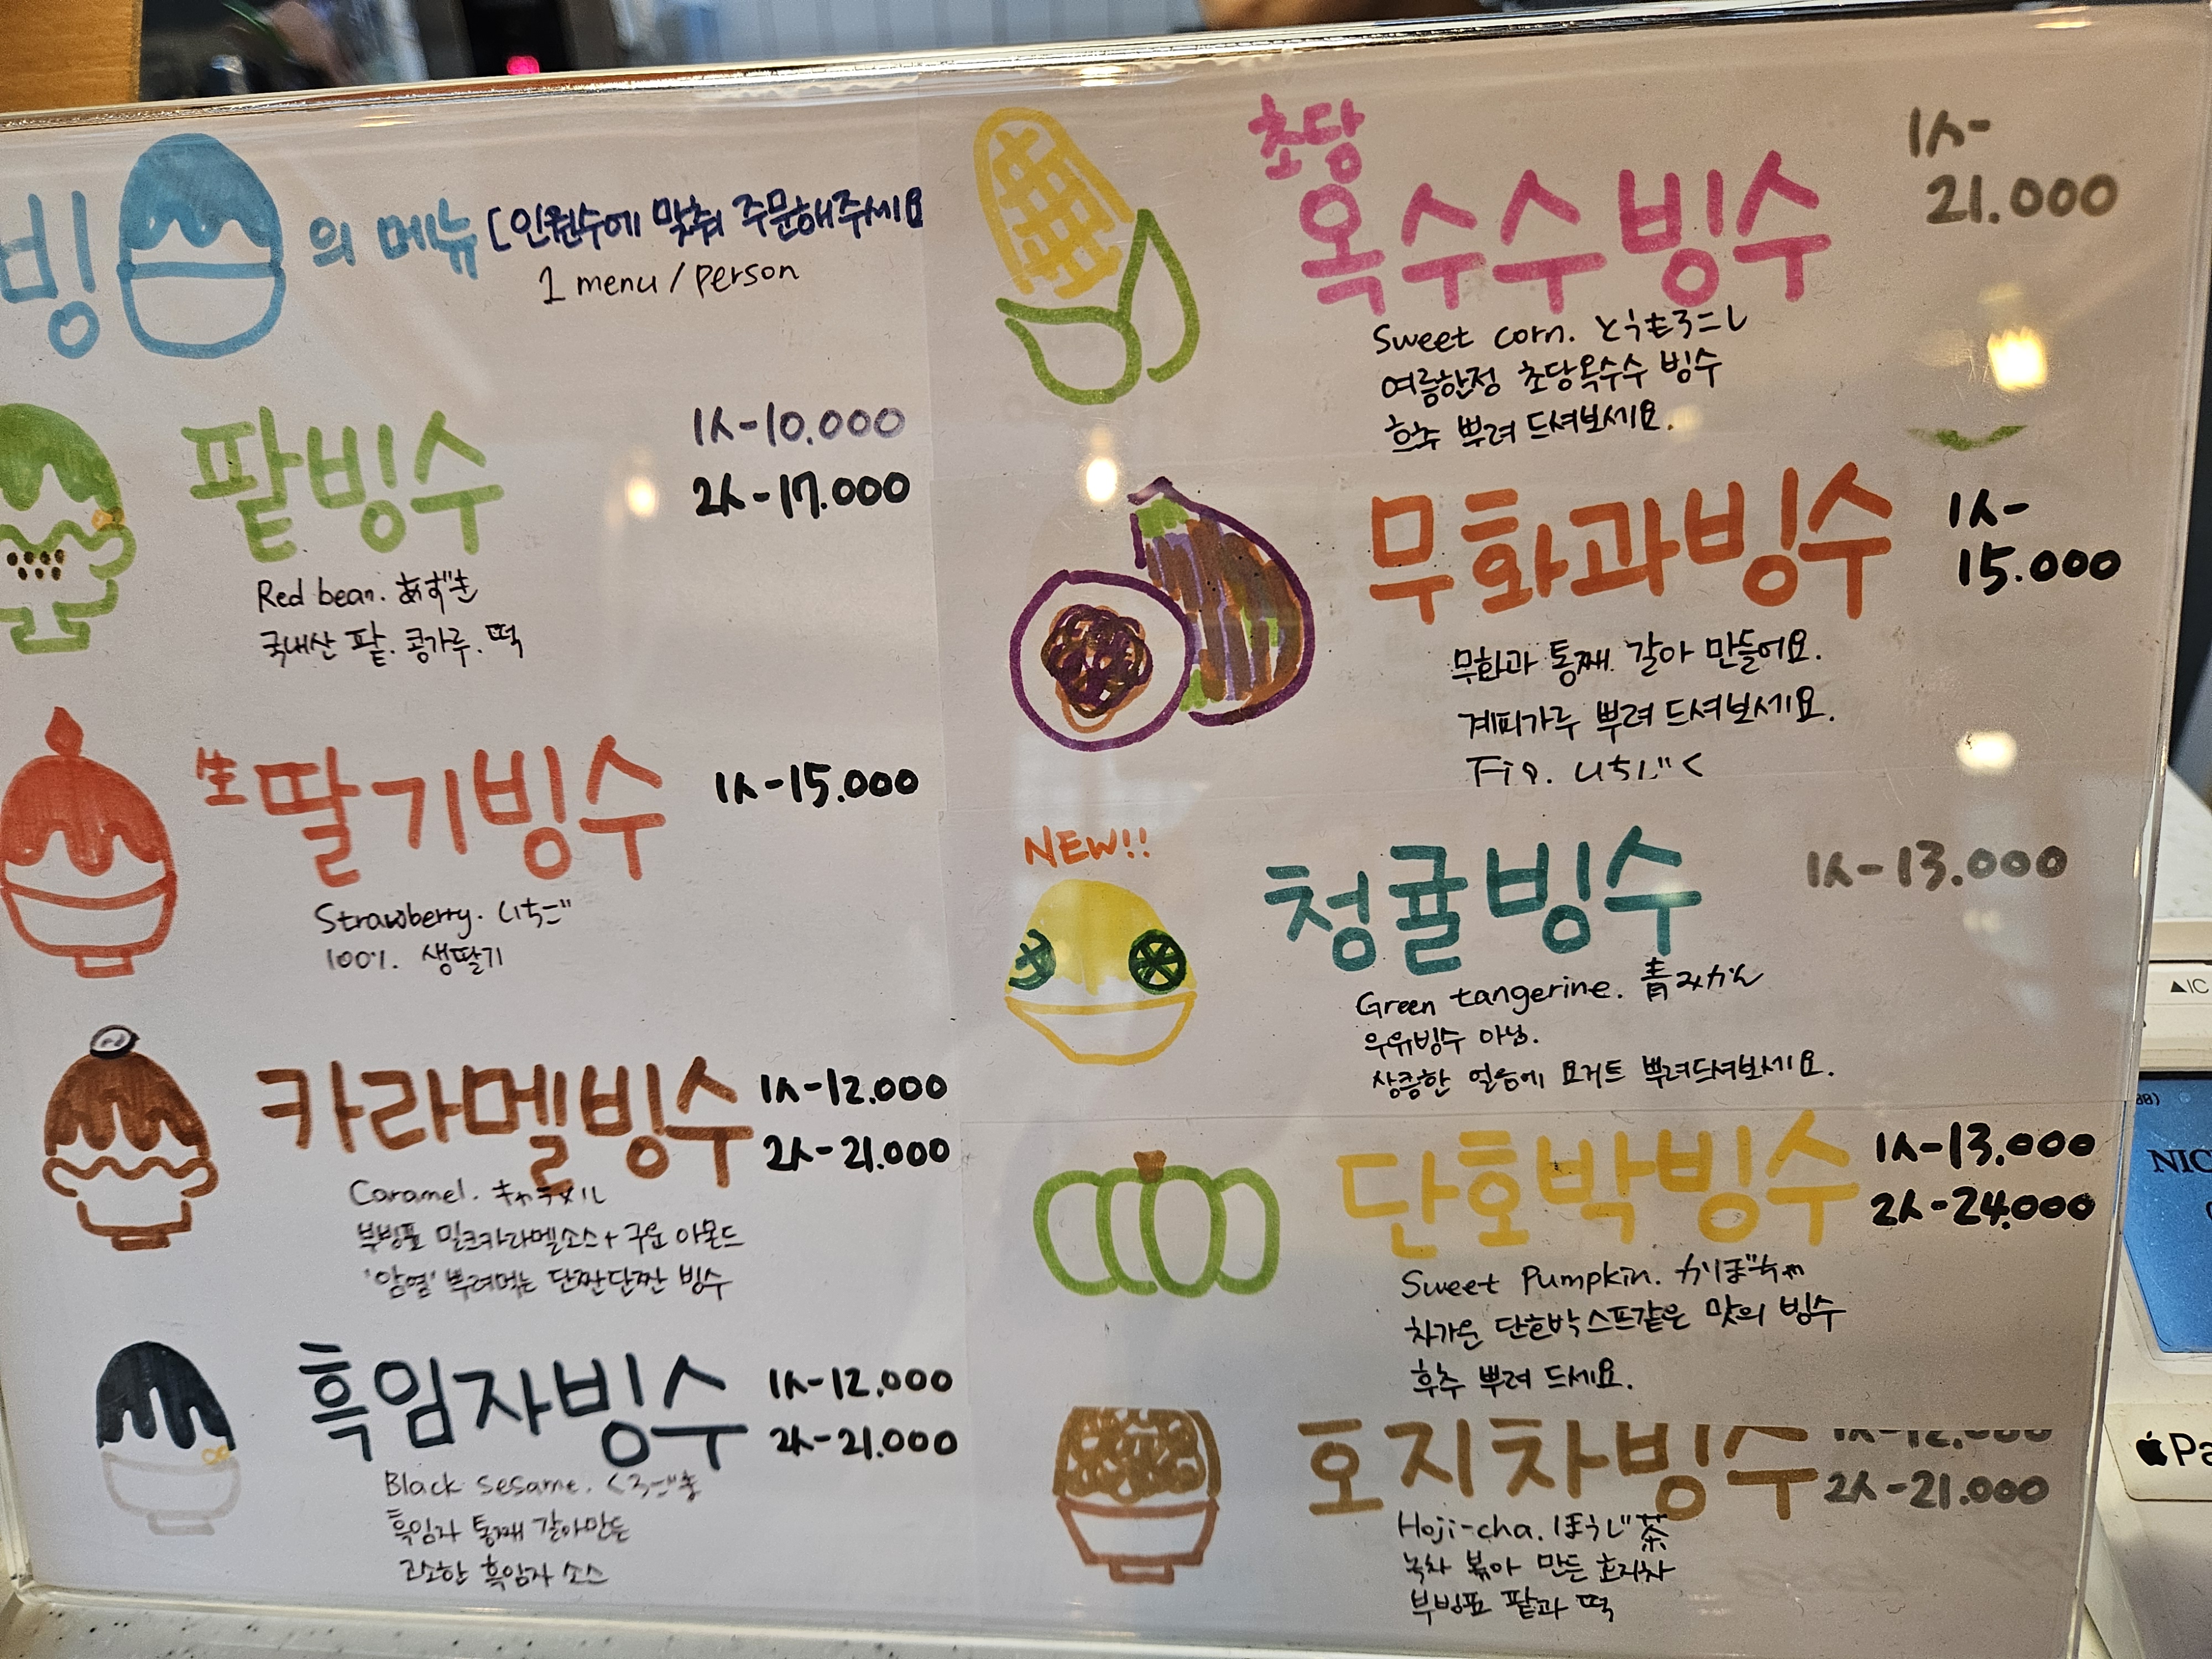 빙
의 메뉴 [인원수에 맞춰 주문해주세요
1 menu / person
팥빙수
1人-10.000
2人-17.000
Red bean. あずき
국내산 팥. 콩가루. 떡
生딸기빙수
1人-15.000
Strawberry. いちご
100%. 생딸기
카라멜빙수
1人-12.000
2人-21.000
Caramel. キャラメル
부빙표 밀크카라멜소스+구운 아몬드
'암염' 뿌려먹는 단짠단짠 빙수
흑임자빙수
1人-12.000
2人-21.000
Black sesame. くろごま
흑임자 통째 갈아만든
고소한 흑임자 소스
초당
옥수수빙수
1人-
21.000
Sweet corn. とうもろこし
여름한정 초당옥수수 빙수
후추 뿌려 드셔보세요.
무화과빙수
1人-
15.000
무화과 통째 갈아 만들어요.
계피가루 뿌려 드셔보세요.
Fig. いちじく
NEW!!
청귤빙수
1人-13.000
Green tangerine. 青みかん
우유빙수 아님.
상큼한 얼음에 요거트 뿌려드셔보세요.
단호박빙수
1人-13.000
2人-24.000
Sweet Pumpkin. かぼちゃ
차가운 단호박스프같은 맛의 빙수
후추 뿌려 드세요.
호지차빙수
1人-12.000
2人-21.000
Hoji-cha. ほうじ茶
녹차 볶아 만든 호지차
부빙표 팥과 떡
▲IC
NIC
Pa